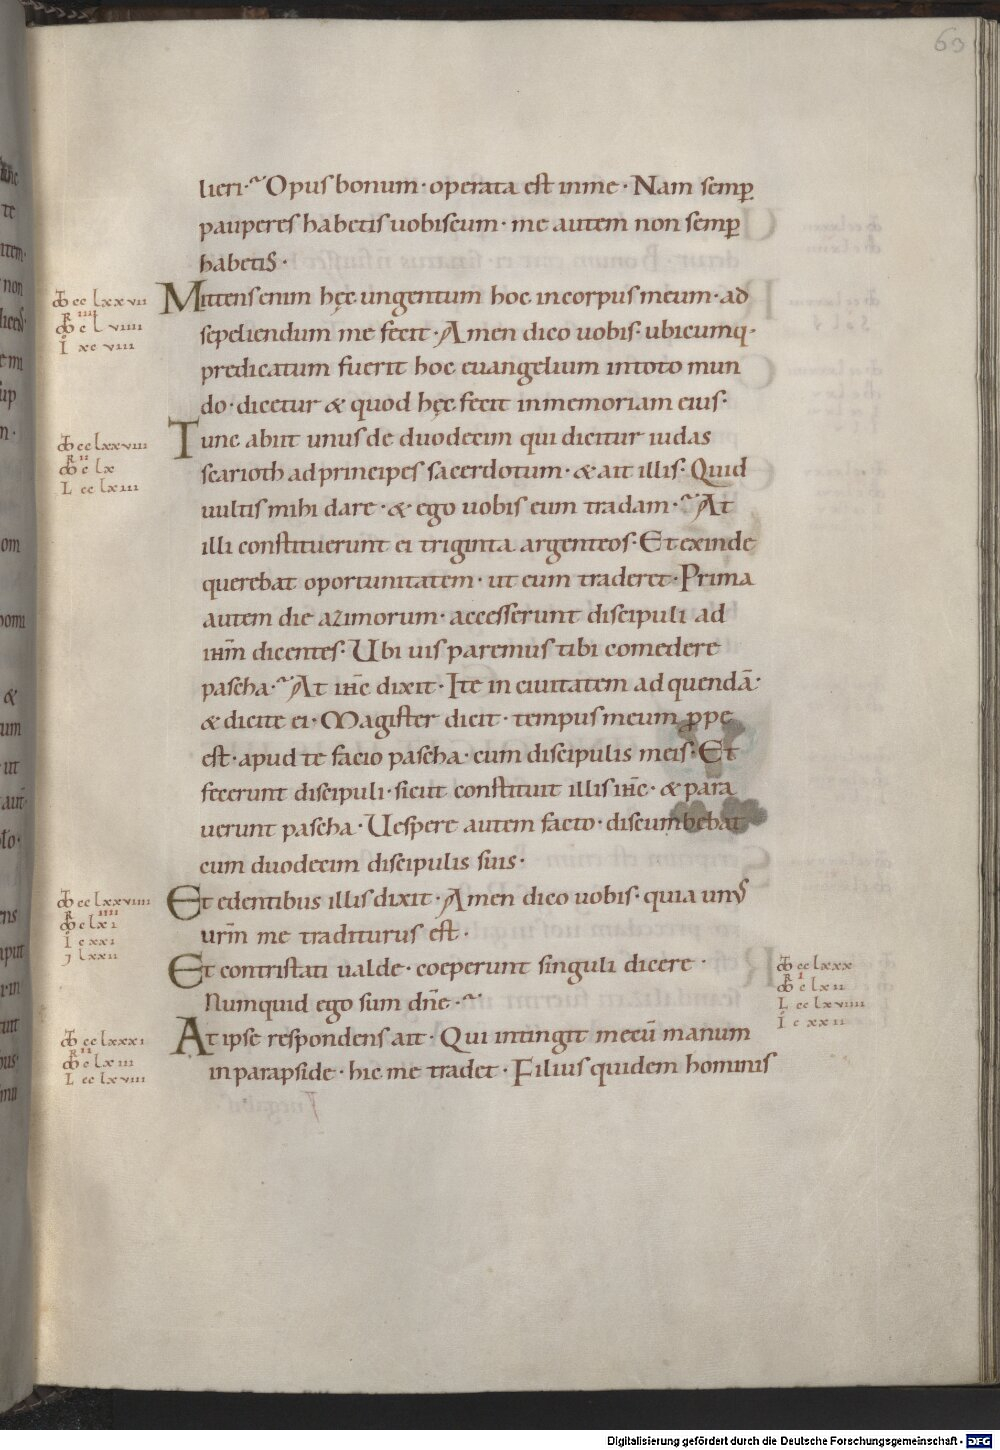 63
lieri· Opus bonum· operata est in me· Nam semp̲
pauperes habetis uobiscum· me autem non semp̲
habetis·
Mittens enim hęc ungentum hoc in corpus meum· ad
sepeliendum me fecit· Amen dico uobis· ubicumq·
predicatum fuerit hoc euangelium in toto mun
do· dicetur & quod hęc fecit in memoriam eius·
Tunc abiit unus de duodecim qui dicitur iudas
scarioth ad principes sacerdotum· & ait illis· Quid
uultis mihi dare· & ego uobis eum tradam· At
illi constituerunt ei triginta argenteos· Et exinde
querebat oportunitatem· ut eum traderet· Prima
autem die azimorum· accesserunt discipuli ad
ihm̄ dicentes· Ubi uis paremus tibi comedere
pascha· At ihc̄ dixit· Ite in ciuitatem ad quendā·
& dicite ei· Magister dicit· tempus meum ꝓpe
est· apud te facio pascha· cum discipulis meis· Et
fecerunt discipuli· sicut constituit illis ihc̄· & para
uerunt pascha· Uespere autem facto· discumbebat
cum duodecim discipulis suis·
Et edentibus illis dixit· Amen dico uobis· quia unus
urm̄ me traditurus est·
Et contristati ualde· coeperunt singuli dicere·
Numquid ego sum dn̄e·
At ipse respondens ait· Qui intingit mecū manum
in parapside· hic me tradet· Filius quidem hominis
cc lxxvii
R iiii
c l viiii
I xc viii
cc lxxviii
R ii
c lx
L cc lxiii
cc lxxviiii
R iiii
c lxi
I c xxi
lxxii
cc lxxx
R i
c lxii
L cc lxviiii
I c xxii
cc lxxxi
R ii
c lxiii
L cc lxviii
Digitalisierung gefördert durch die Deutsche Forschungsgemeinschaft - DFG